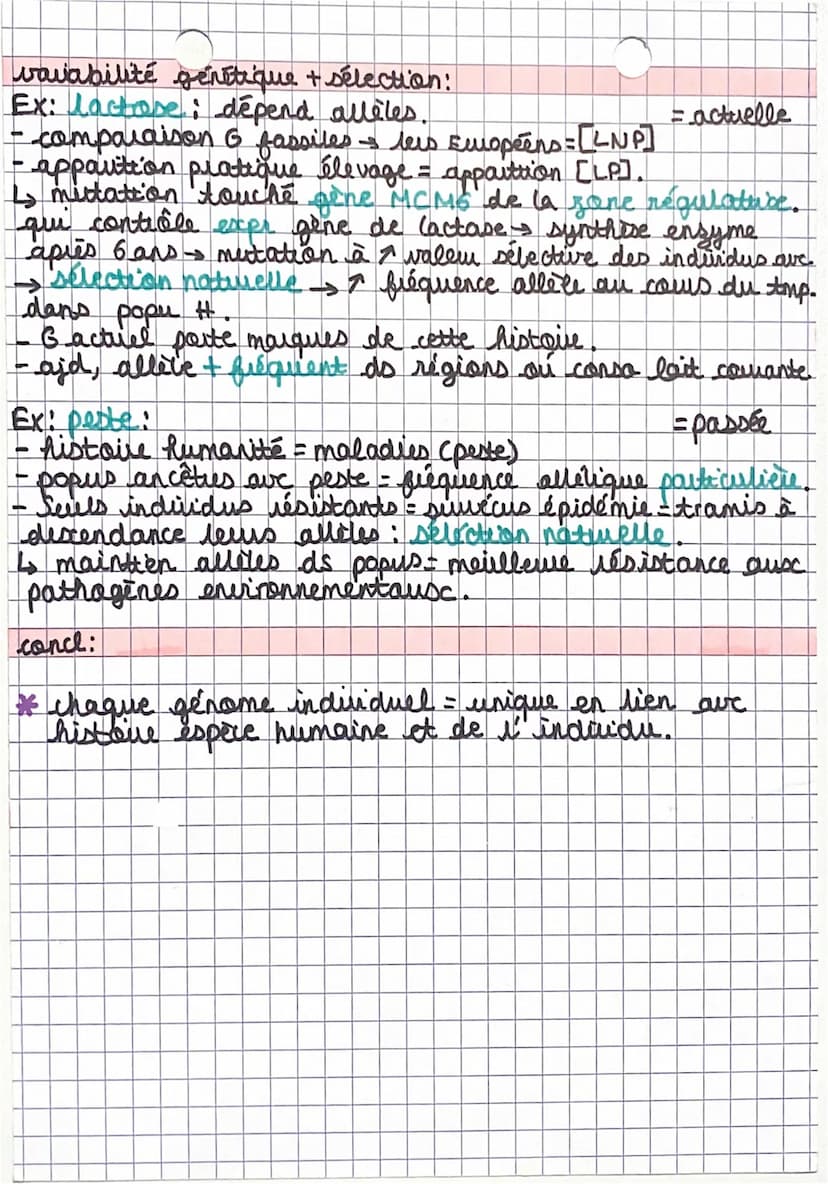 variabilité génétique + sélection:
Ex: lactose; dépend allèles. = actuelle
- comparaison G fossiles → 1ers Européens = [LNP]
- apparition pratique élevage = apparition [LP].
↳ mutation touché gène MCM6 de la zone régulatrice.
qui contrôle expr gène de lactase → synthèse enzyme
après 6 ans → mutation à ↗ valeur sélective des individus avc.
→ sélection naturelle → ↑ fréquence allèle au cours du tmp.
dans popu #.
- G actuel porte marques de cette histoire.
- ajd, allèle + fréquent ds régions où conso lait courante
Ex: peste: = passée
- histoire humanité = maladies (peste)
- popus ancêtres avc peste = fréquence allélique particulière.
- Seuls individus résistants = survécus épidémie = tramis à
descendance leurs allèles : sélection naturelle.
↳ maintien allèles ds popus = meilleure résistance aux
pathogènes environnementaux.
concl:
* chaque génome individuel = unique en lien avc
histoire espèce humaine et de l'individu.